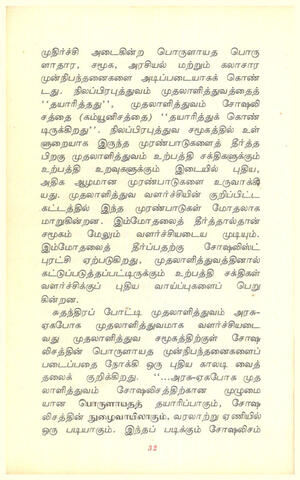 முதிர்ச்சி அடைகின்ற பொருளாயத பொரு
ளாதார, சமூக, அரசியல் மற்றும் கலாசார
முன்நிபந்தனைகளை அடிப்படையாகக் கொண்
டது. நிலப்பிரபுத்துவம் முதலாளித்துவத்தைத்
''தயாரித்தது'', முதலாளித்துவம் சோஷலி
சத்தை (கம்யூனிசத்தை) ''தயாரித்துக் கொண்
டிருக்கிறது''. நிலப்பிரபுத்துவ சமூகத்தில் உள்
ளுறையாக இருந்த முரண்பாடுகளைத் தீர்த்த
பிறகு முதலாளித்துவம் உற்பத்தி சக்திகளுக்கும்
உற்பத்தி உறவுகளுக்கும் இடையில் புதிய,
அதிக ஆழமான முரண்பாடுகளை உருவாக்கி
யது. முதலாளித்துவ வளர்ச்சியின் குறிப்பிட்ட
கட்டத்தில் இந்த முரண்பாடுகள் மோதலாக
மாறுகின்றன. இம்மோதலைத் தீர்த்தால்தான்
சமூகம் மேலும் வளர்ச்சியடைய முடியும்.
இம்மோதலைத் தீர்ப்பதற்கு சோஷலிஸ்ட்
புரட்சி ஏற்படுகிறது, முதலாளித்துவத்தினால்
கட்டுப்படுத்தப்பட்டிருக்கும் உற்பத்தி சக்திகள்
வளர்ச்சிக்குப் புதிய வாய்ப்புகளைப் பெறு
கின்றன.
சுதந்திரப் போட்டி முதலாளித்துவம் அரசு-
ஏகபோக முதலாளித்துவமாக வளர்ச்சியடை
வது முதலாளித்துவ சமூகத்திற்குள் சோஷ
லிசத்தின் பொருளாயத முன்நிபந்தனைகளைப்
படைப்பதை நோக்கி ஒரு புதிய காலடி வைத்
தலைக் குறிக்கிறது. ''...அரசு-ஏகபோக முத
லாளித்துவம் சோஷலிசத்திற்கான முழுமை
யான பொருளாயதத் தயாரிப்பாகும், சோஷ
லிசத்தின் நுழைவாயிலாகும், வரலாற்று ஏணியில்
ஒரு படியாகும். இந்தப் படிக்கும் சோஷலிசம்
32